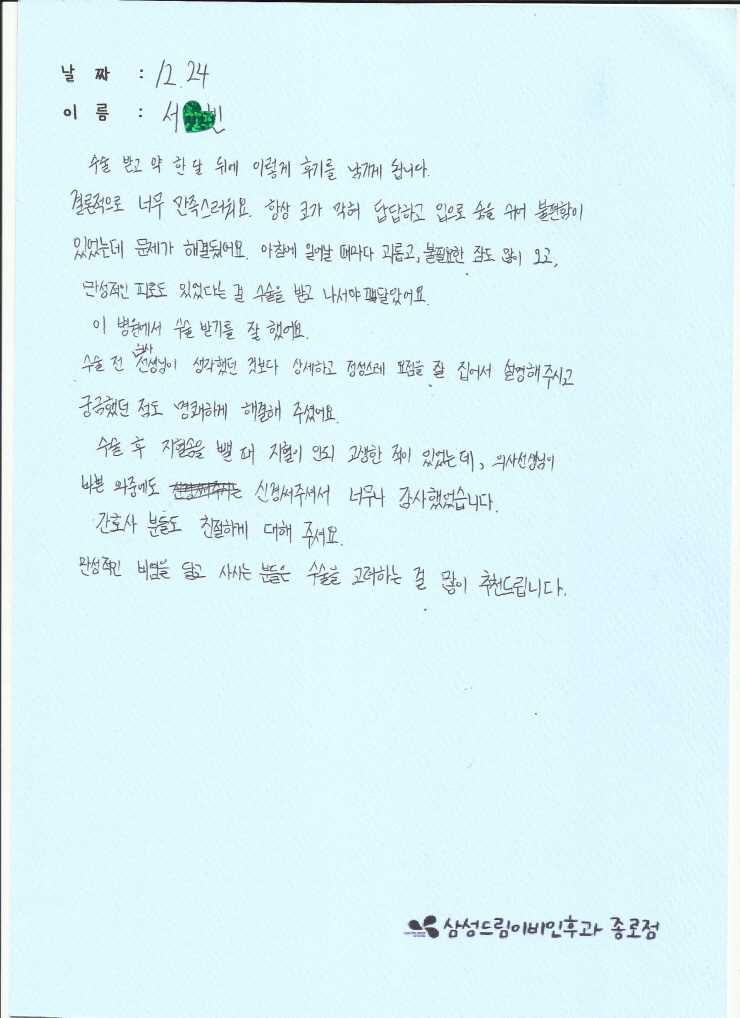 날 짜 : 12.24
이 름 : 서 빈
수술 받고 약 한 달 뒤에 이렇게 후기를 남기게 됩니다.
결론적으로 너무 만족스러워요. 항상 코가 막혀 답답하고 입으로 숨을 쉬어 불편함이
있었는데 문제가 해결됐어요. 아침에 일어날 때마다 괴롭고, 불필요한 잠도 많이 오고,
만성적인 피로도 있었다는 걸 수술을 받고 나서야 깨달았어요.
이 병원에서 수술 받기를 잘 했어요.
수술 전 의사선생님이 생각했던 것보다 상세하고 정성스레 요점을 잘 집어서 설명해주시고
궁금했던 점도 명쾌하게 해결해 주셨어요.
수술 후 지혈솜을 뺄 때 지혈이 안되 고생한 적이 있었는데, 의사선생님이
바쁜 와중에도 신경써주셔서 너무나 감사했었습니다.
간호사 분들도 친절하게 대해 주셔요.
만성적인 비염을 달고 사시는 분들은 수술을 고려하는 걸 많이 추천드립니다.
삼성드림이비인후과 종로점